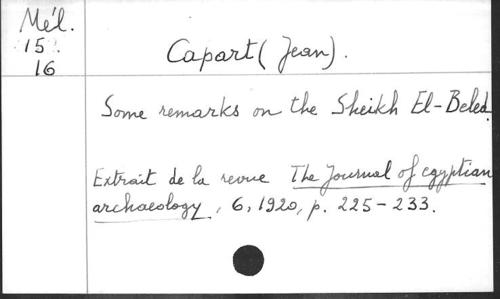 Mél.
15.
16
Capart (Jean).
Some remarks on the Sheikh El-Beled.
Extrait de la revue The Journal of egyptian
archaeology, 6, 1920, p. 225-233.